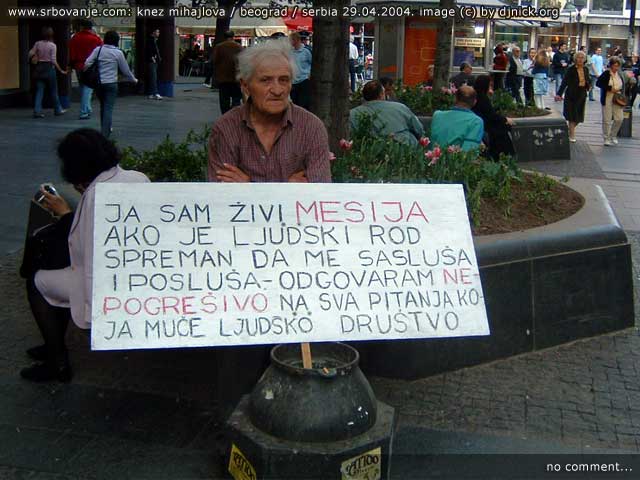 www.srbovanje.com: knez mihajlova / beograd / serbia 29.04.2004. image (c) by djnick.org
JA SAM ŽIVI MESIJA
AKO JE LJUDSKI ROD
SPREMAN DA ME SASLUŠA
I POSLUŠA-ODGOVARAM NE-
POGREŠIVO NA SVA PITANJA KO-
JA MUČE LJUDSKO DRUŠTVO
no comment...